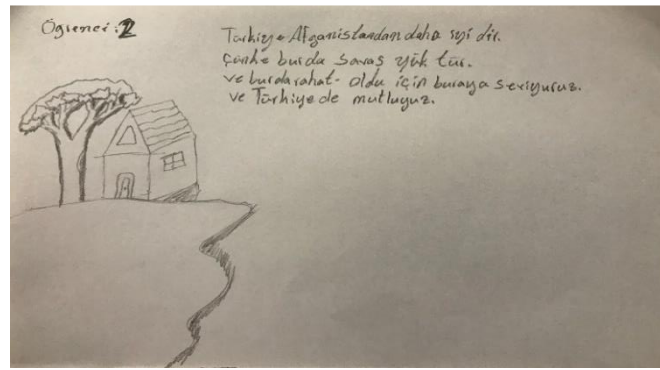 Öğrenci: 2
Türkiye Afganistandan daha iyi dir.
Çünke burda Savaş yük tür.
ve burda rahat- oldu için buraya seviyuruz.
ve Türkiye de mutluyuz.